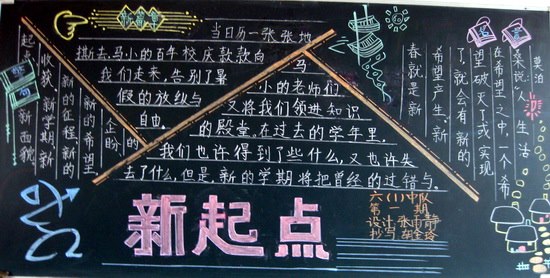 当日历一张张地
撕去,马小的百年校庆款款向
我们走来,告别了暑
假的放纵与
自由。
马
小的老师们
又将我们领进知识
的殿堂,在过去的学年里.
我们也许得到了些什么,又也许失
去了什么,但是,新的学期将把曾经的过错与
的
企盼
新的希望
新的征程、新的
收获、新学期、新
新面貌
名言
莫泊
桑说:“人生活
在希望之中,一个希
望破灭了或实现
了,就会有新的
希望产生。新
春就是新
新起点
六(1)中队
设计
抄写